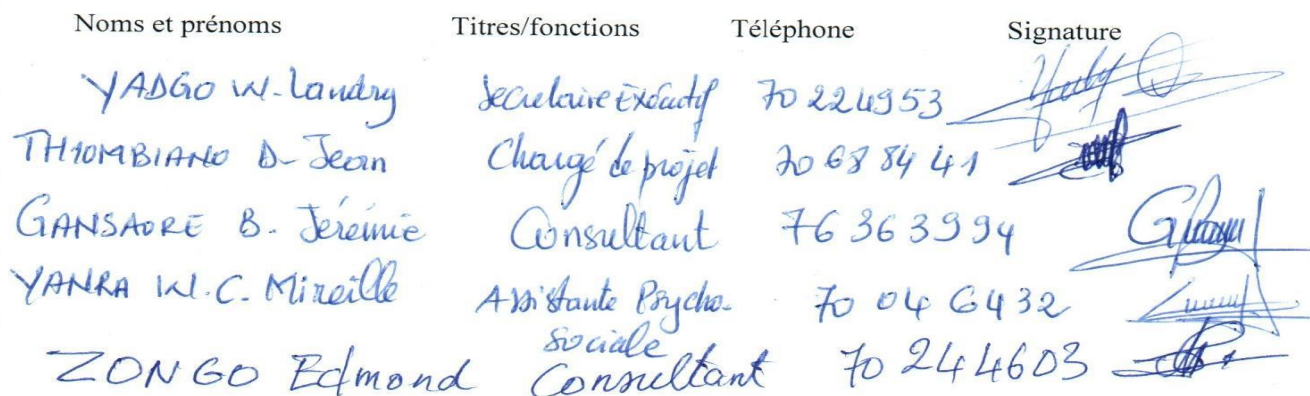 Noms et prénoms Titres/fonctions Téléphone Signature
YADGO W. Landry Secretaire Exécutif 70224953
THIOMBIANO D- Jean Chargé de projet 70 68 84 41
GANSAORE B. Jérémie Consultant 76 36 39 94
YANRA W. C. Mireille Assistante Psycho- 70 04 64 32
Sociale
ZONGO Edmond Consultant 70 244603